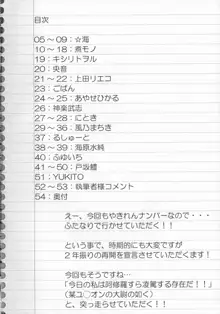 目次
05～09：☆海
10～18：煮モノ
19：キシリトヲル
20：央音
21～22：上田リエコ
23：ごばん
24～25：あやせひかる
26：神楽武志
27～28：にとき
29～36：風乃まちき
37：るしゅーと
38～39：海原水純
40：ふゆいち
41～50：戸坂醸
51：YUKITO
52～53：執筆者様コメント
54：奥付
えー、今回もやきれんナンバーなので・・・
ふたなりで行かせていただきます！
という事で、時期的にも大変ですが
２年振りの再開を宣言させていただきます！
今回もそうですね…
「今日の私は阿修羅すら凌駕する存在だ！！」
（某ユ○オンの大尉の如く）
と、突っ走らせていただく！！